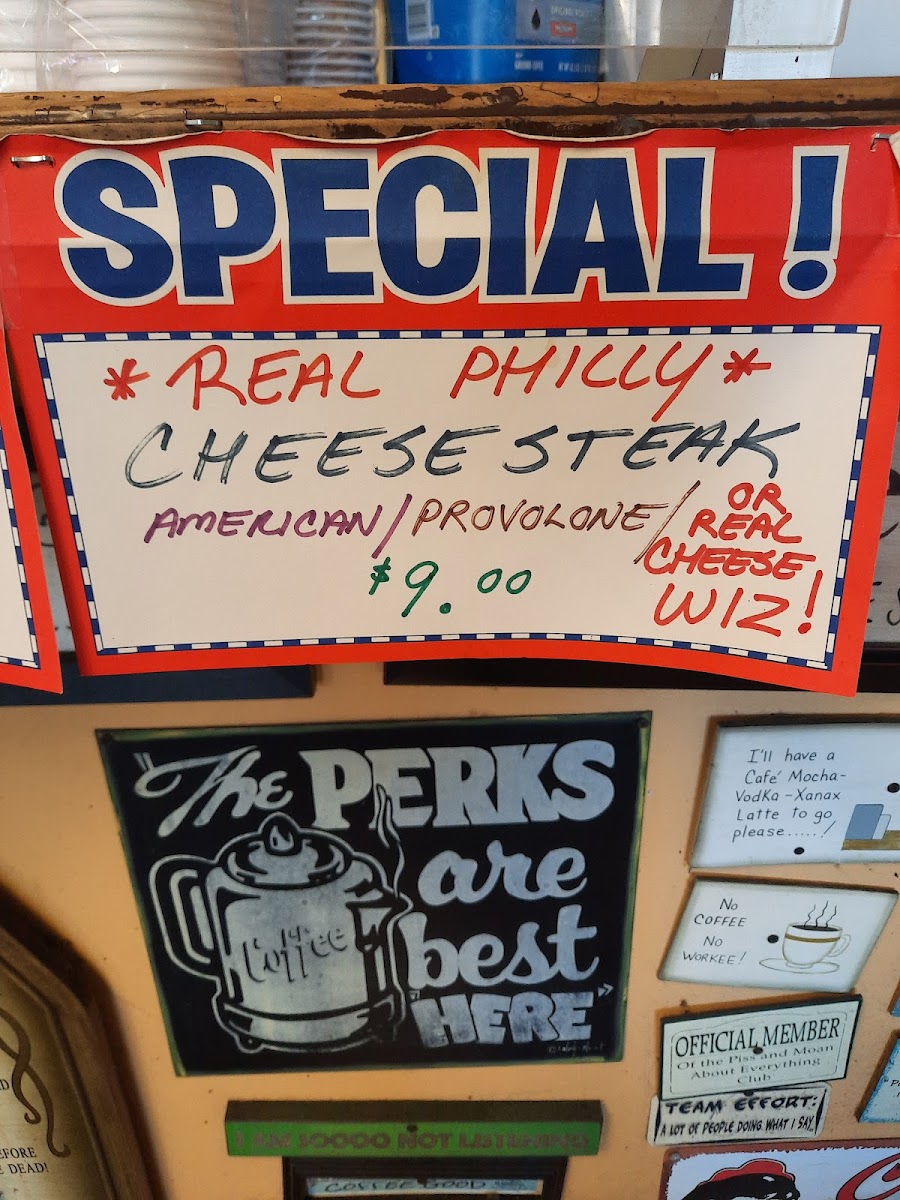 SPECIAL!
*REAL PHILLY*
CHEESE STEAK
AMERICAN/PROVOLONE/
OR
REAL
CHEESE
WIZ!
$9.00
"The PERKS
are
best
"HERE"
Coffee
I'll have a
Café Mocha-
Vodka-Xanax
Latte to go
please.....!
No
COFFEE
No
WORKEE!
OFFICIAL MEMBER
Of the Piss and Moan
About Everything
Club
TEAM EFFORT:
A LOT OF PEOPLE DOING WHAT I SAY.
I AM SOOOO NOT LISTENING
COFFEE GOOD
EFORE
E DEAD!